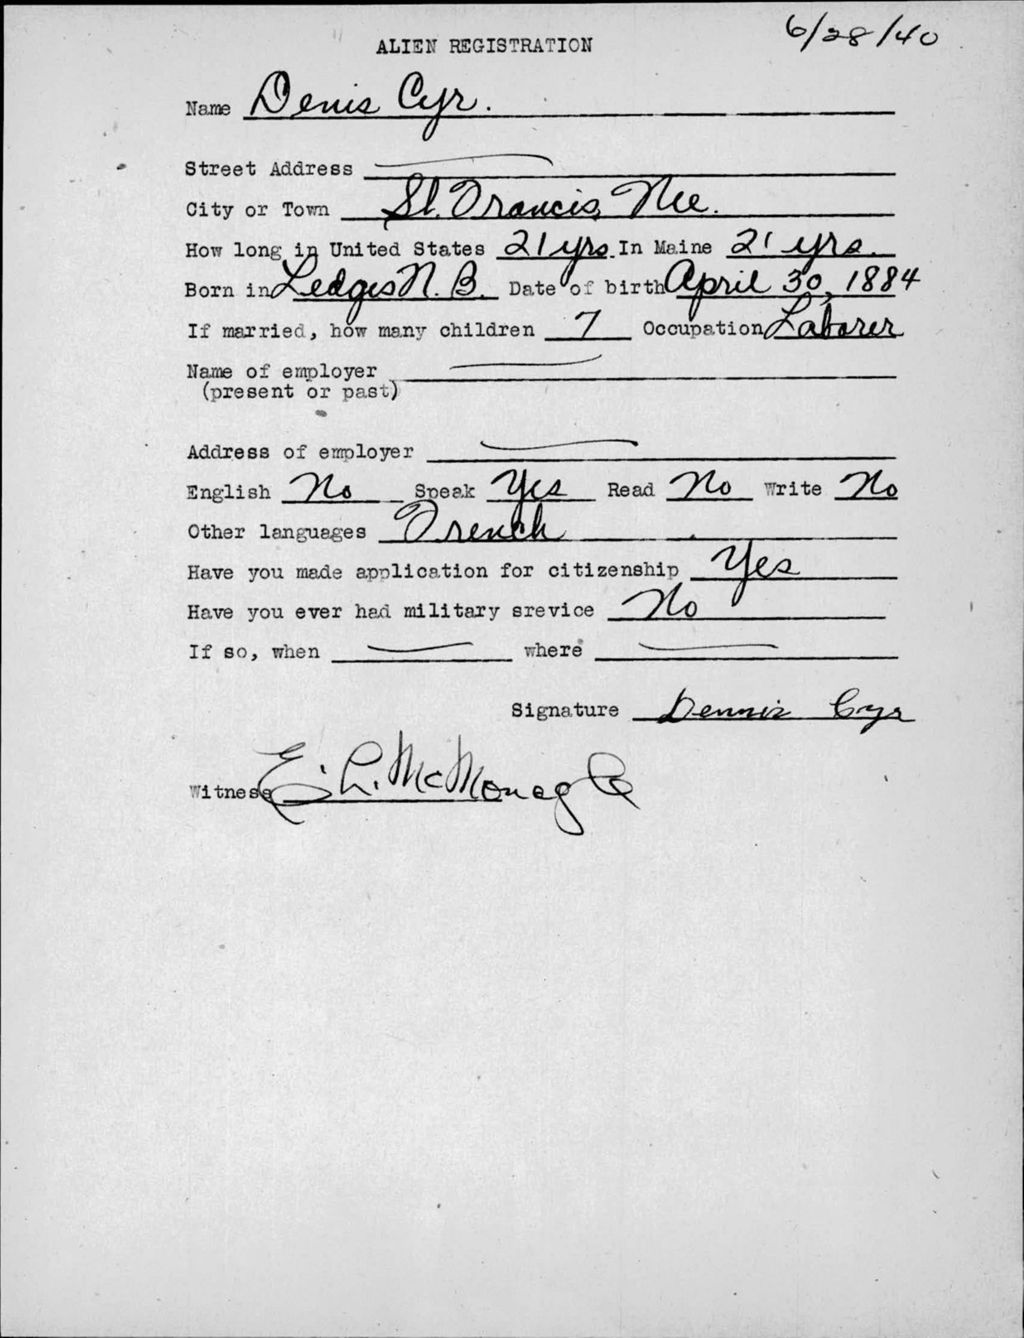 6/28/40
ALIEN REGISTRATION
Name Denis Cyr.
Street Address
City or Town St. Francis, Me.
How long in United States 21 yrs. In Maine 21 yrs.
Born in Ledges N. B. Date of birth April 30, 1884
If married, how many children 7 Occupation Laborer
Name of employer
(present or past)
Address of employer
English No Speak Yes Read No Write No
Other languages French
Have you made application for citizenship Yes
Have you ever had military srevice No
If so, when where
Signature Dennis Cyr
Witness E. L. McMonagle